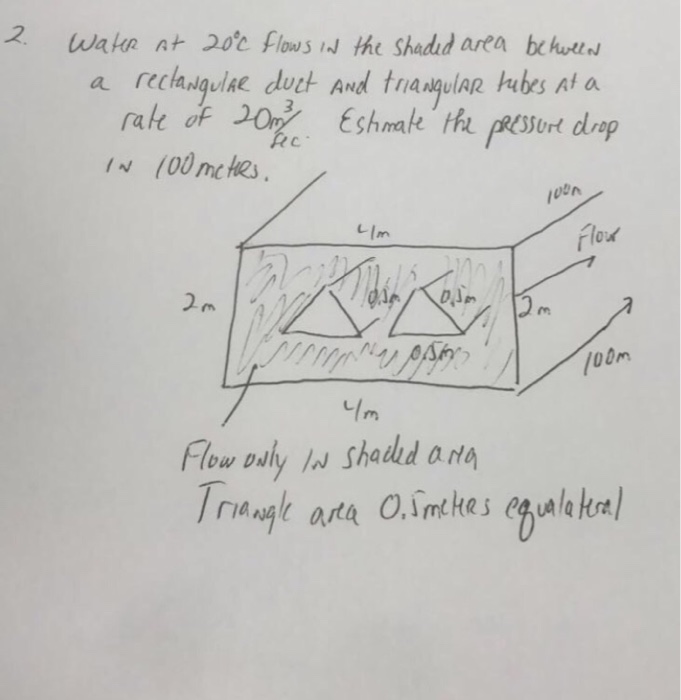 2. Water at 20°C flows in the shaded area between
a rectangular duct and triangular tubes at a
rate of 20m³/sec. Estimate the pressure drop
in 100 metres.
100m
4m
Flow
2m
0.5m
0.5m
2m
0.5m
100m
4m
Flow only in shaded area
Triangle area 0.5 meters equalateral